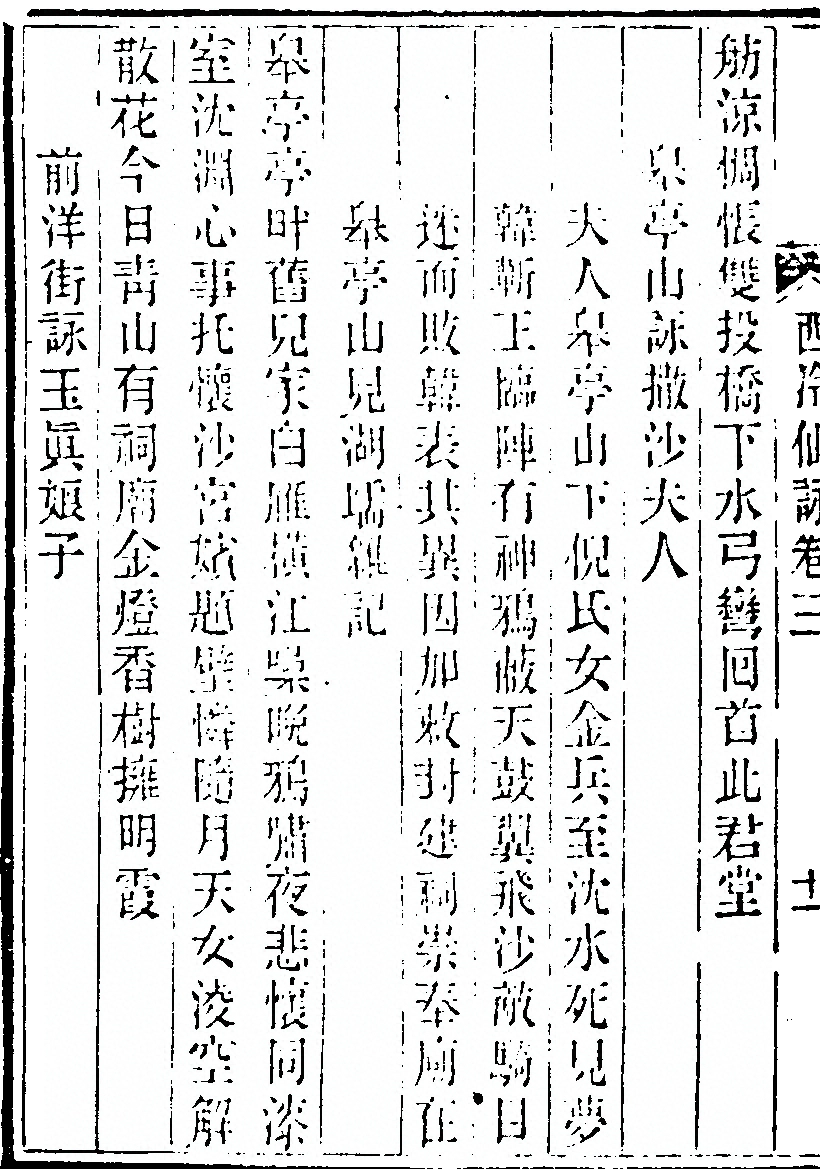 西泠仙詠卷三
十一
舫涼惆悵雙投橋下水弓彎回首此君堂
皋亭山詠撒沙夫人
夫人皋亭山下倪氏女金兵至沈水死見夢
韓蘄王臨陣有神鴉蔽天鼓翼飛沙敵騎日
迷而敗韓表其異因加敕封建祠崇奉廟在
皋亭山見湖壖雜記
皋亭亭畔舊兒家白雁橫江噪晩鴉嘯夜悲懷同漆
室沈淵心事托懷沙宮娥題壁憐隨月天女淩空解
散花今日靑山有祠廟金燈香樹擁明霞
前洋街詠玉眞娘子